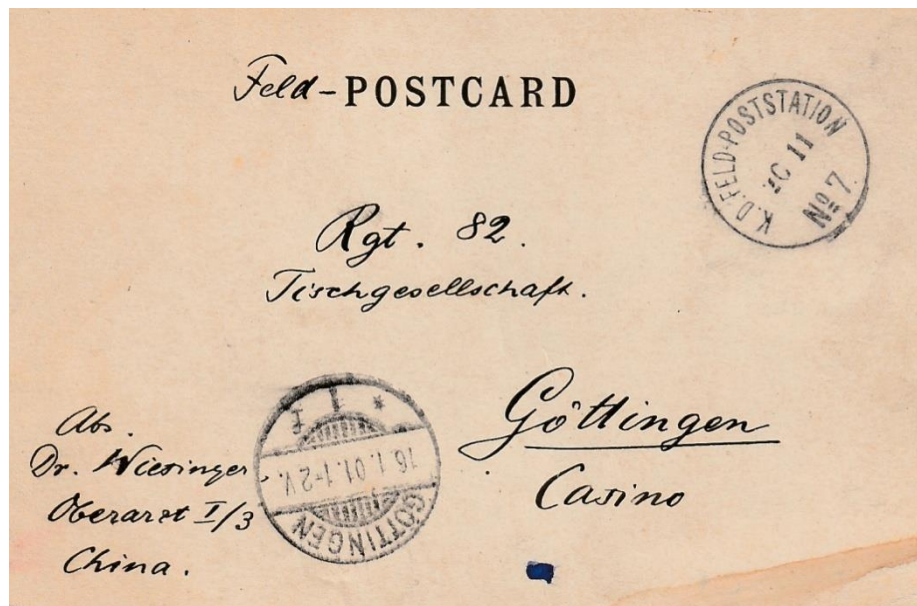 Feld-POSTCARD
K.D.FELD-POSTSTATION
11
No 7
Rgt. 82.
Tischgesellschaft.
Göttingen
Casino
Abs.
Dr. Wiesinger
Oberarzt I/3
China.
GÖTTINGEN
16.1.01.1-2V.